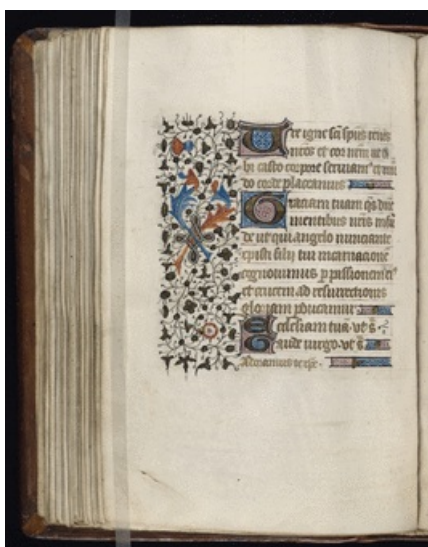 Vre igne sc̄i sp̄us renes
nr̄os et cor nr̄m dn̄e ut ti
bi casto corpore seruiam᷒ et mũ
do corde placeamus
Graciam tuam qs̄ dn̄e
mentibus nr̄is infũ
de ut qui angelo nunciante
xp̄isti filii tui incarnacionē
cognouimus p̱ passionem ei᷒
et crucem ad resurrectionis
gloriam p̱ducamur
Ecclesiam tuā. vt s̄
Gaude uirgo. vt s̄
Adoramus te xp̄e.